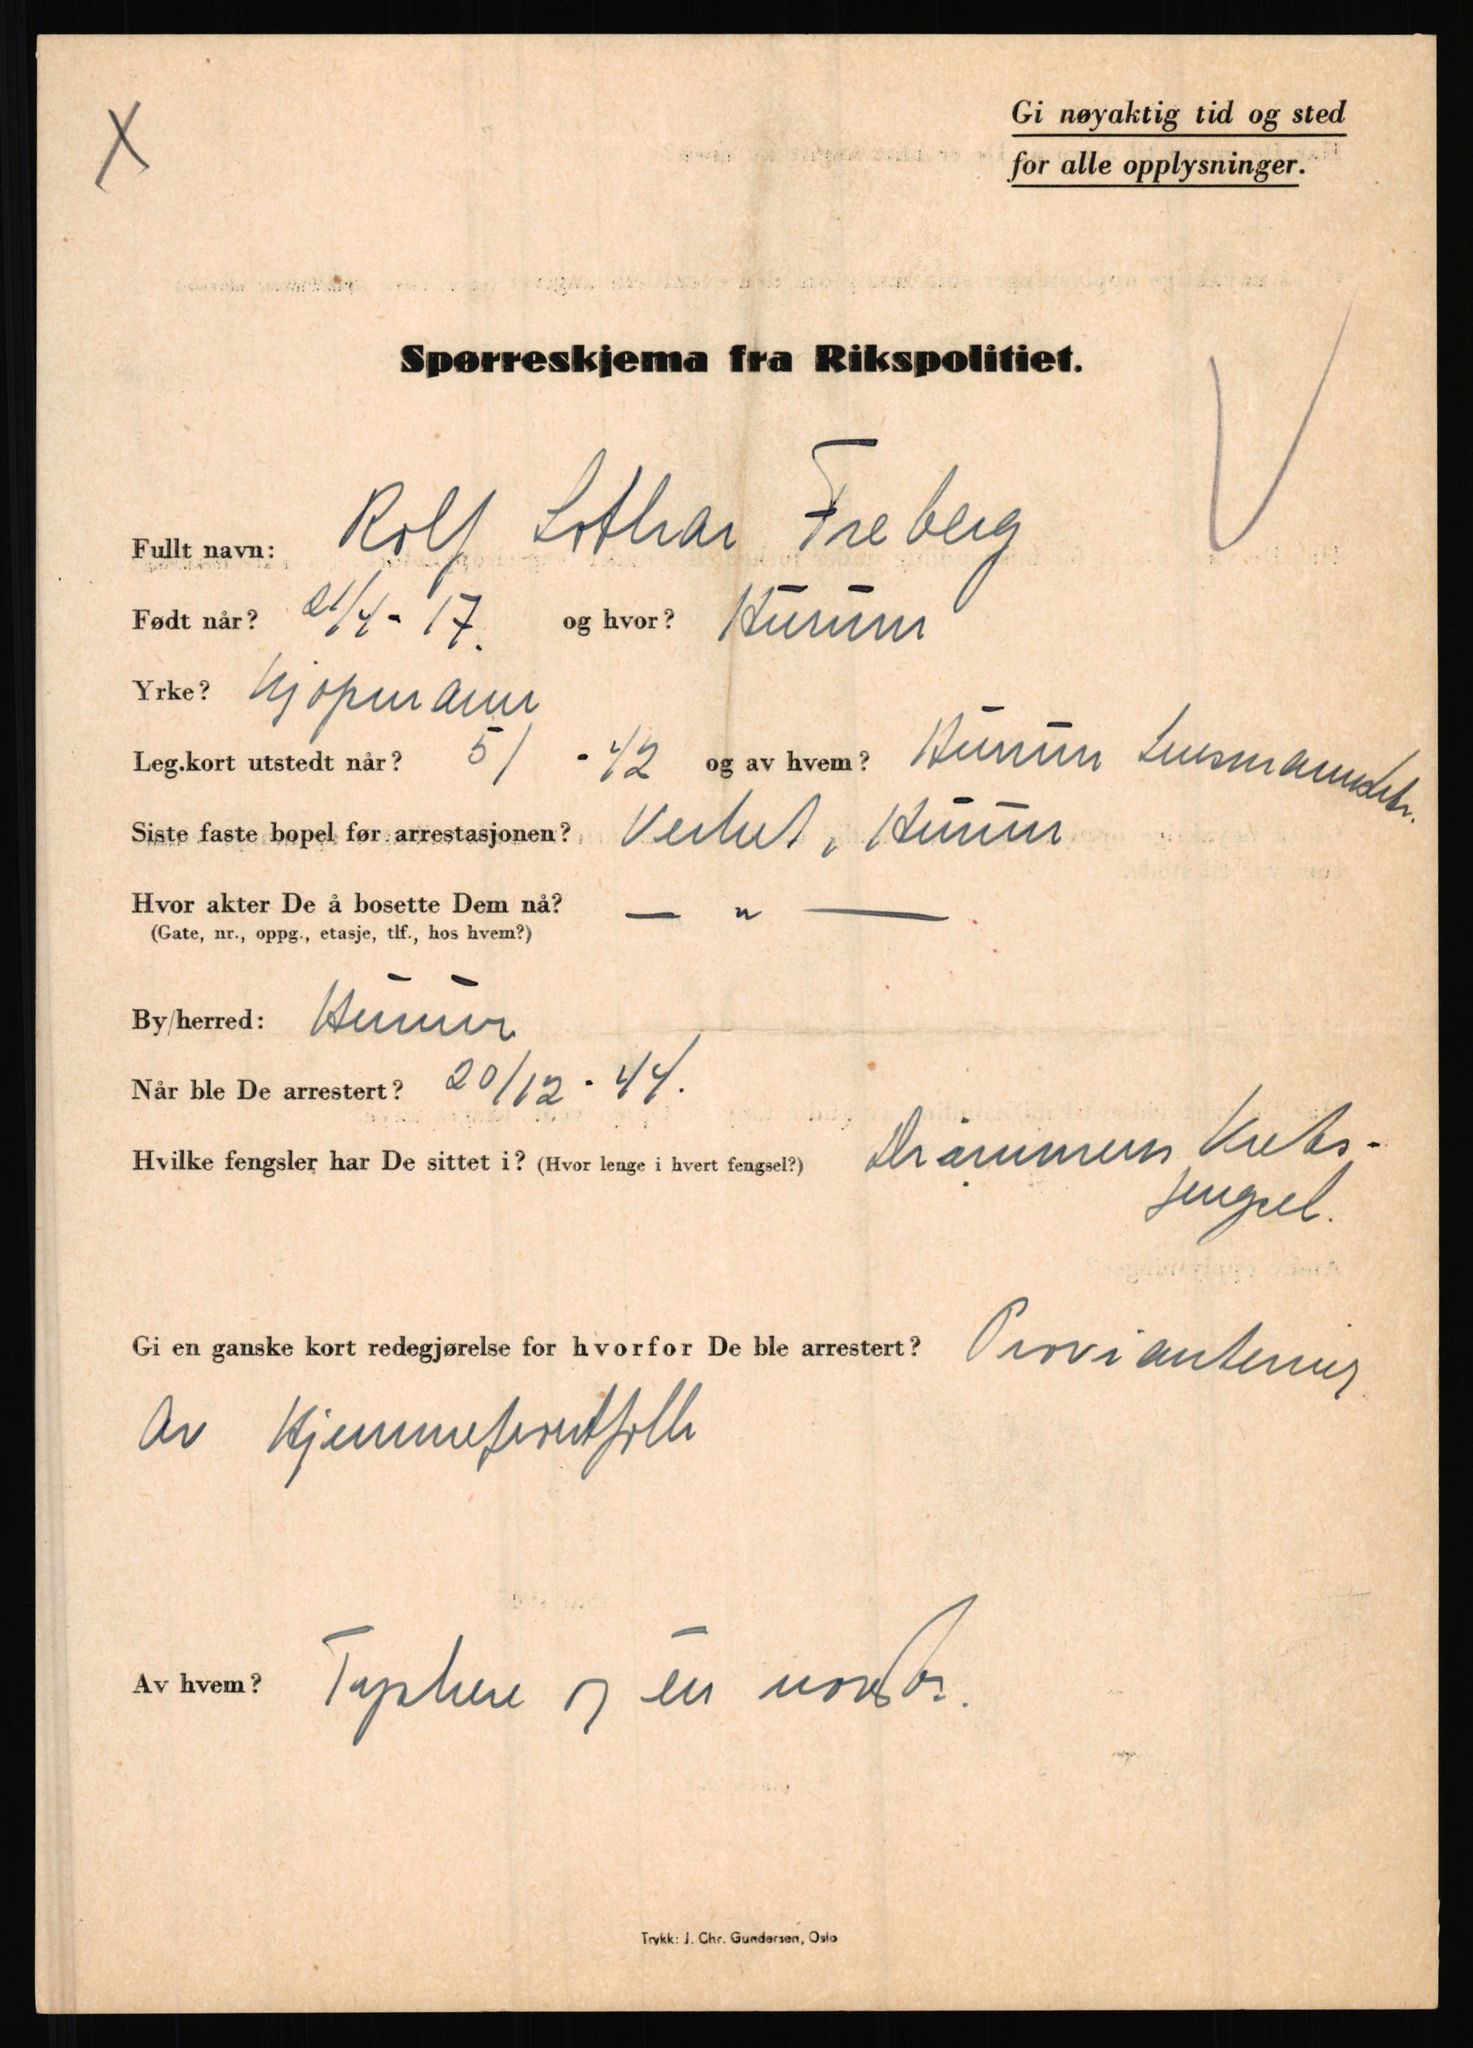 X
Gi nøyaktig tid og sted
for alle opplysninger.
Spørreskjema fra Rikspolitiet.
V
Fullt navn: Rolf Lothar Freberg
Født når? 21/4-17. og hvor? Hurum
Yrke? Kjøpmann
Leg.kort utstedt når? 5/ -42 og av hvem? Hurum
Siste faste bopel før arrestasjonen? Verket, Hurum
Hvor akter De å bosette Dem nå? — " —
(Gate, nr., oppg., etasje, tlf., hos hvem?)
By/herred: Hurum
Når ble De arrestert? 20/12-44.
Hvilke fengsler har De sittet i? (Hvor lenge i hvert fengsel?) Drammens Krets-
fengsel.
Gi en ganske kort redegjørelse for hvorfor De ble arrestert? Proviantering
av Hjemmefrontfolk
Av hvem? Tyskere og en norsk.
Trykk: J. Chr. Gundersen, Oslo